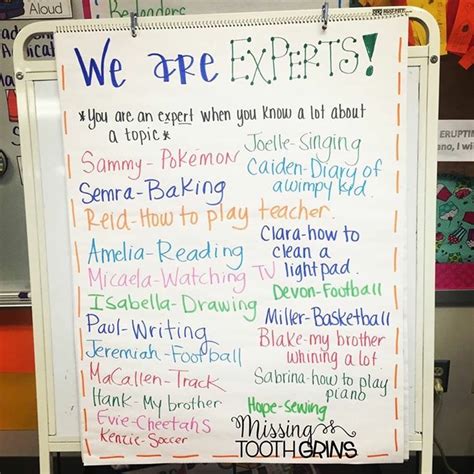 We are EXPERTS!
*You are an expert when you know a lot about
a topic*
Sammy-Pokémon
Semra-Baking
Reid-How to play teacher.
Amelia-Reading
Micaela-Watching TV
Isabella-Drawing
Paul-Writing
Jeremiah-Football
MaCallen-Track
Hank-My brother
Evie-Cheetahs
Kenzie-Soccer
Joelle-Singing
Caiden-Diary of
a wimpy kid.
Clara-how to
clean a
lightpad.
Devon-Football
Miller-Basketball
Blake-my brother
whining a lot
Sabrina-how to play
piano
Hope-sewing
Missing
TOOTH GRINS
Aloud
ERUPTIN